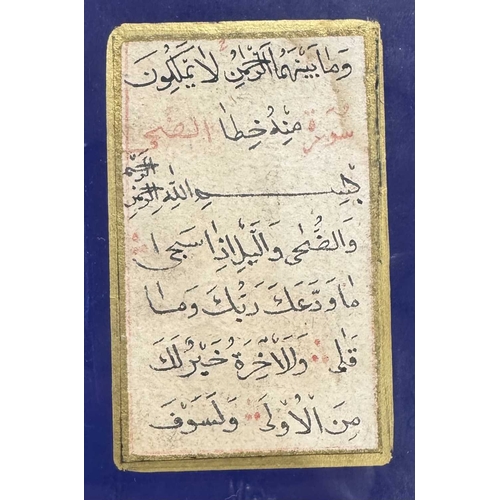 وَمَا بَيْنَهُمَا الرَّحْمٰنِ لَا يَمْلِكُونَ
مِنْهُ خِطَا سورة الضحى
بِسْمِ اللهِ الرَّحْمٰنِ الرَّحِيْمِ
وَالضُّحٰى وَالَّيْلِ اِذَا سَجٰى
مَا وَدَّعَكَ رَبُّكَ وَمَا
قَلٰى وَلَلْاٰخِرَةُ خَيْرٌ لَكَ
مِنَ الْاُوْلٰى وَلَسَوْفَ